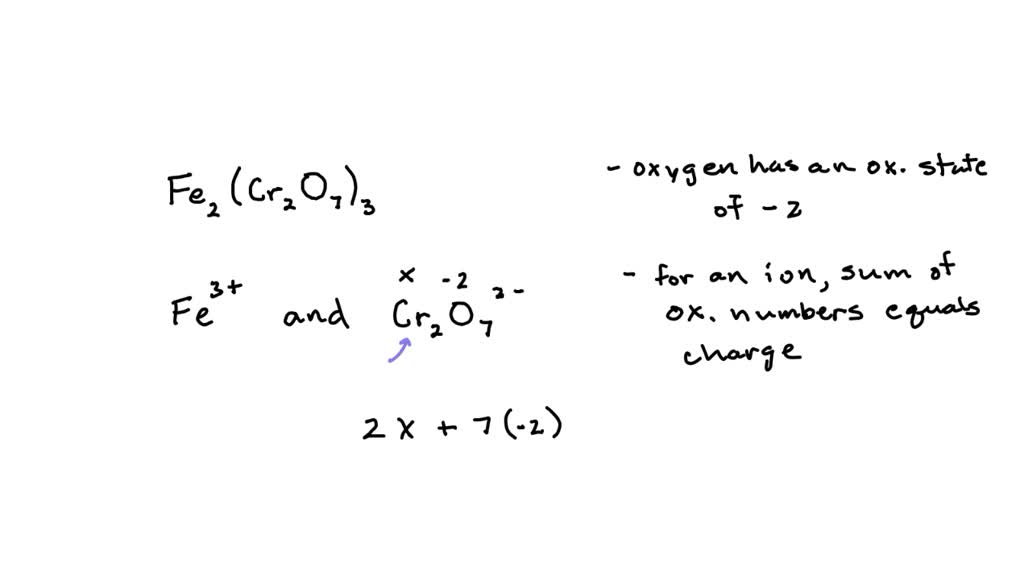 Fe₂(Cr₂O₇)₃
- oxygen has an ox. state
of -2
Fe³⁺ and Cr₂O₇²⁻
x -2
- for an ion, sum of
ox. numbers equals
charge
2x + 7(-2)